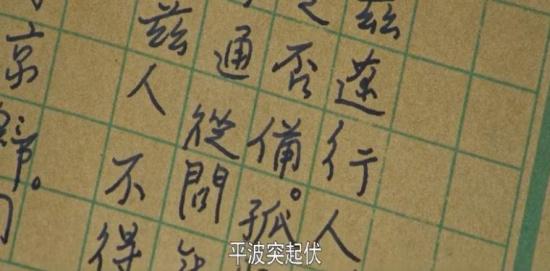 茲遼行人
否備。孤
通從問
茲人不得
京
平波突起伏